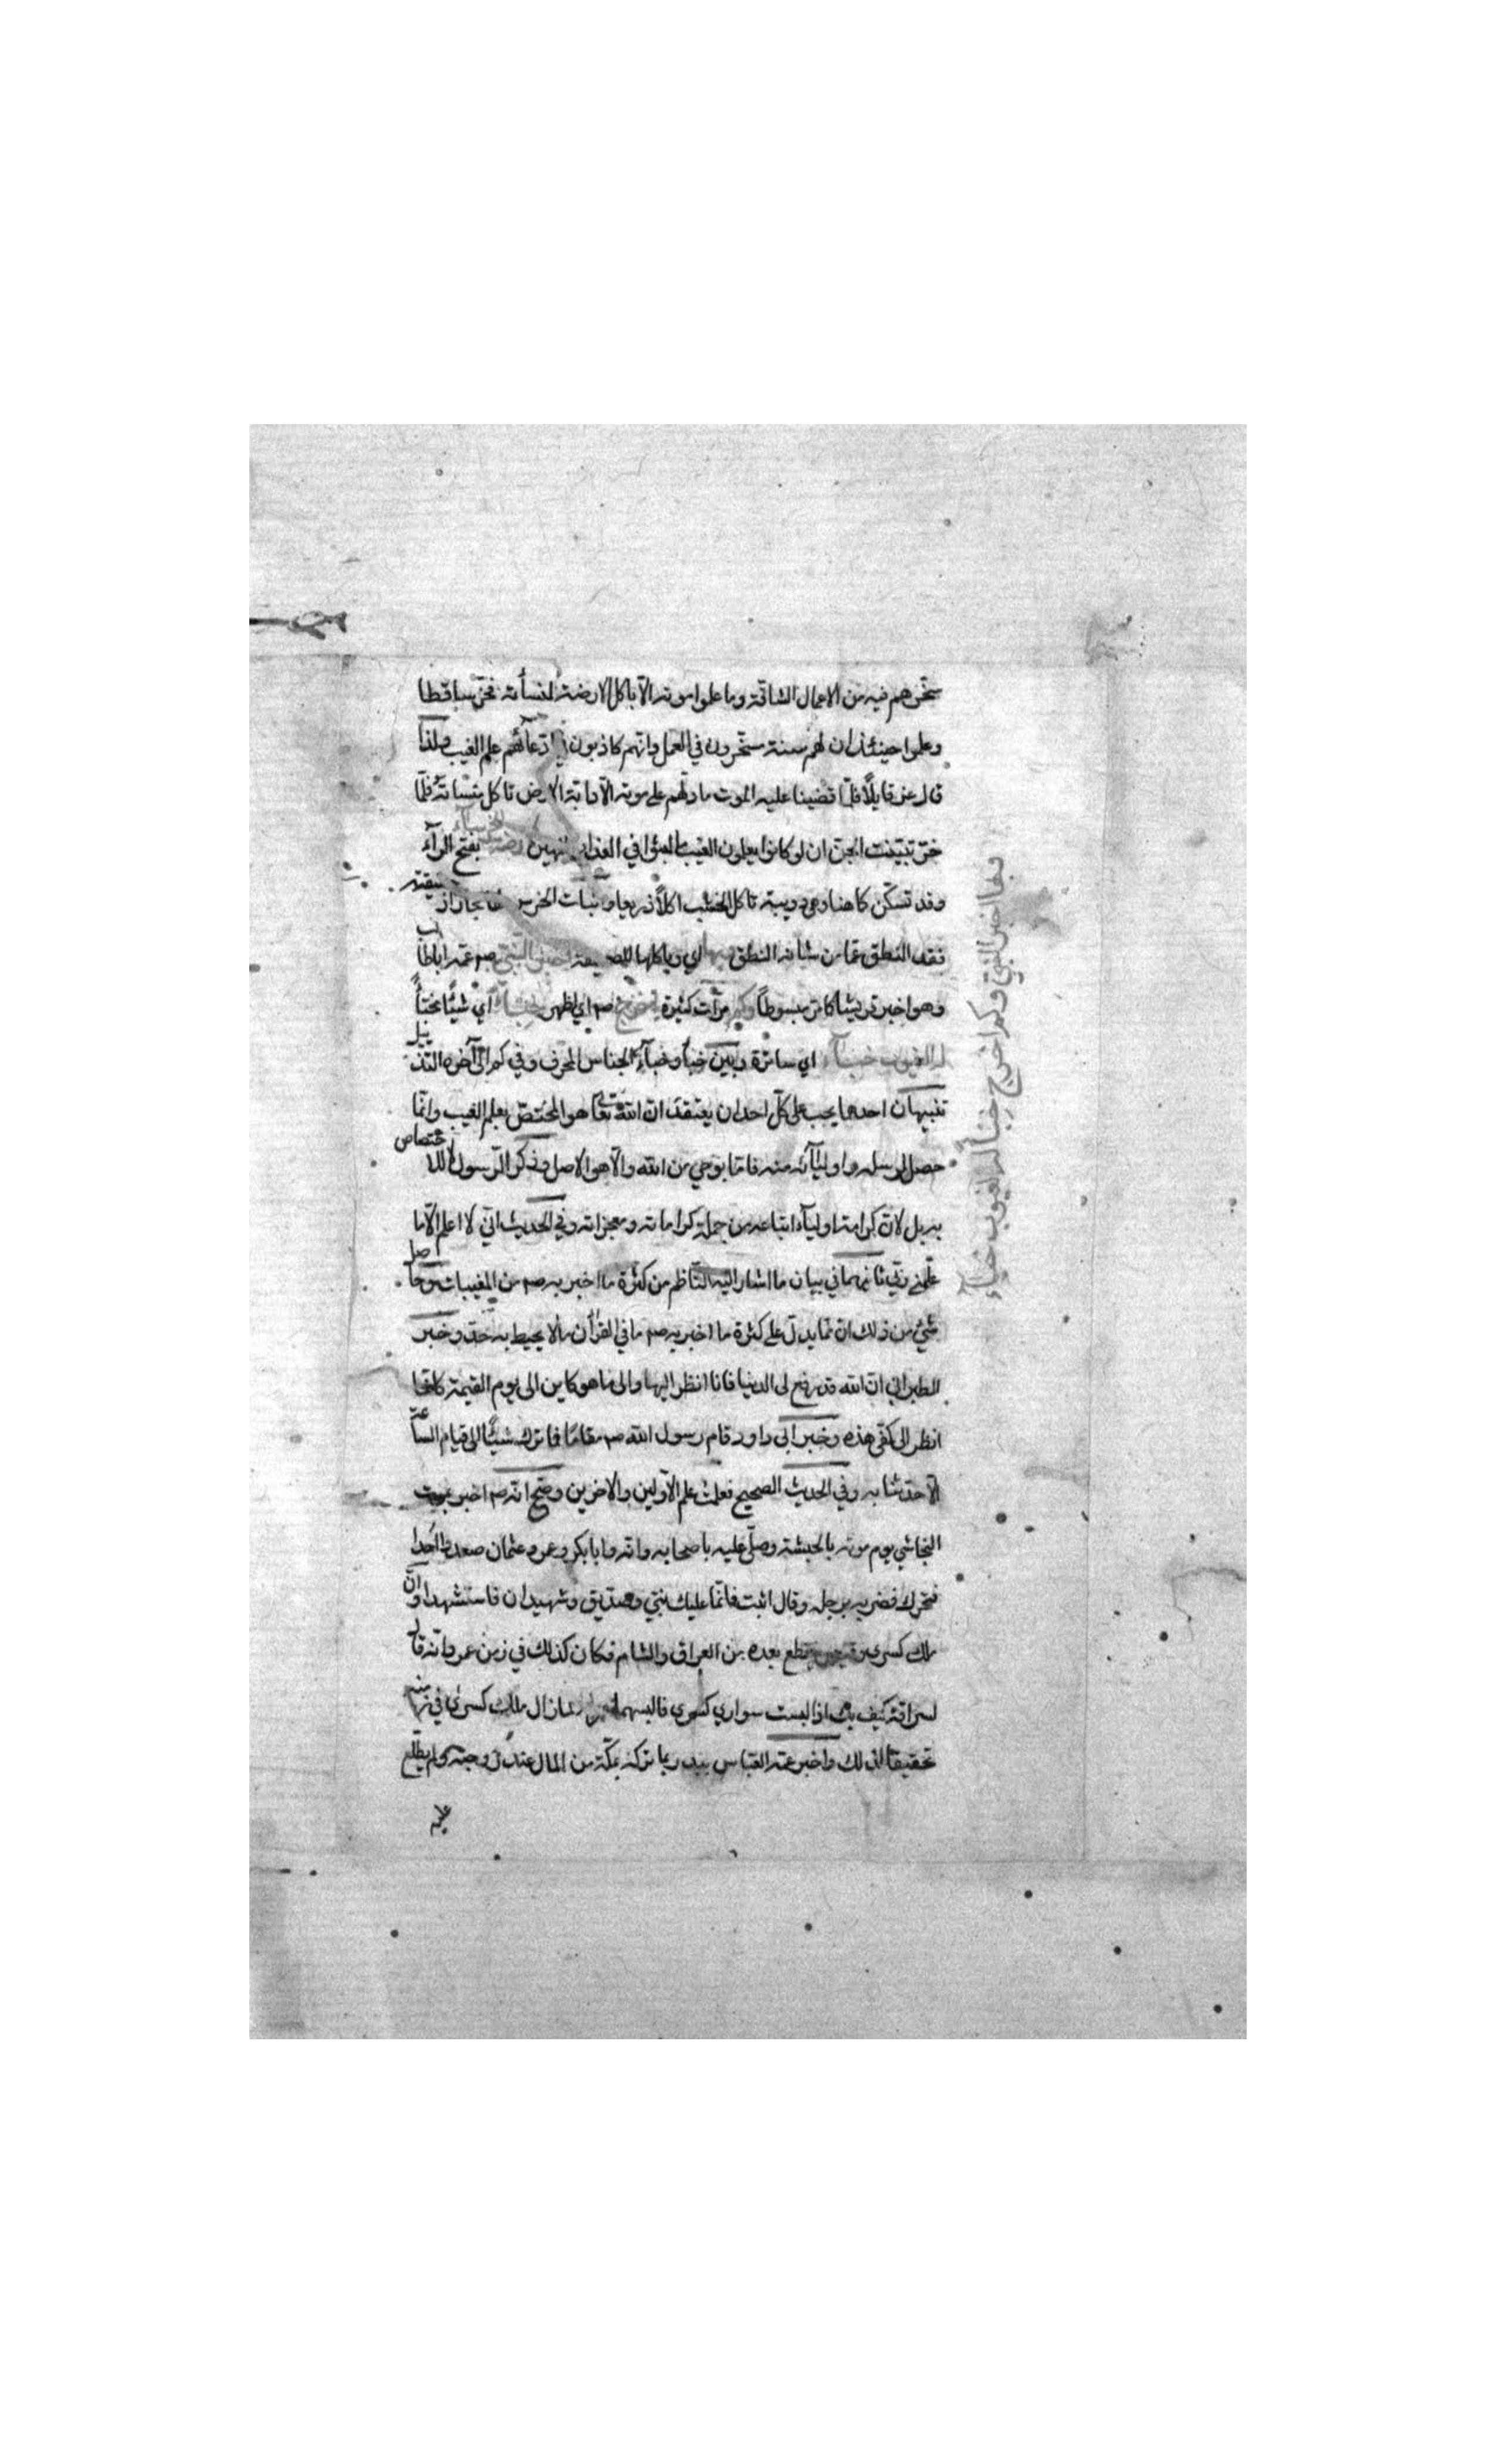 سخرهم فيه من الاعمال الشاقة وما علموا موته الا باكل الارضة لمنسأته فخر ساقطا
وعلموا حينئذ ان لهم سنة مسخرون في العمل وانهم كاذبون في ادعائهم علم الغيب ولذا
قال عز قايلا فلما قضينا عليه الموت ما دلهم على موته الا دابة الارض تاكل منسأته فلما
خر تبينت الجن ان لو كانوا يعلمون الغيب ما لبثوا في العذاب المهين بفتح الرآء
وقد تسكن كما هنا وهي دويبة تاكل الخشب اكلا ذريعا واثبات الخرس
فقد النطق عما من شانه النطق اي وباكلها للصحيفة النبي صم عمه ابا طالب
وهو اخبر قريشا كما مر مبسوطا وكم مرآت كثيرة اخرج صم اي اظهر خبأ اي شيئا مخبأ
له الغيوب خبآء اي ساترة وبين خبأ وخبآء الجناس المحرف وفي كم الى آخره التذييل
تنبيهان احدهما يجب على كل احد ان يعتقد ان الله تعا هو المختص بعلم الغيب وانما
حصل لرسله واوليآئه منه فانما بوحي من الله والا هو الاصل وذكر الرسول لا للاختصاص
به بل لان كرامة اوليآء اتباعه من جملة كراماته ومعجزاته وفي الحديث اني لا اعلم الا ما
علمني ربي ثانيهما في بيان ما اشار اليه الناظم من كثرة ما اخبر به صم من المغيبات وحاصل
شئ من ذلك ان مما يدل على كثرة ما اخبر به صم ما في القرآن مالا يحيط به حد وخبر
الطبراني ان الله قد رفع لى الدنيا فانا انظر اليها والى ما هو كاين الى يوم القيمة كانما
انظر الى كفى هذه وخبر ابى داود قام رسول الله صم مقاما فما ترك شيئا الى قيام الساعة
الا حدثنا به وفي الحديث الصحيح فعلمت علم الاولين والاخرين وصح انه صم اخبر بموت
النجاشي يوم موته بالحبشة وصلى عليه باصحابه وانه وابا بكر وعمر وعثمان صعدوا احدا
فتحرك فضربه برجله وقال اثبت فانما عليك نبي وصديق وشهيدان فاستشهدا وان
ملك كسرى وقيصر يقطع بعده من العراق والشام فكان كذلك في زمن عمر وانه قال
لسراقة كيف بك اذا لبست سواري كسرى فالبسهما عمر لما زال ملك كسرى في زمنه
تحقيقا لذلك واخبر عمه العباس ببدر بما تركه بمكة من المال عند زوجته ولم يطلع
بها اخبر النبي وكم اخرج خبأ له الغيوب خبآء